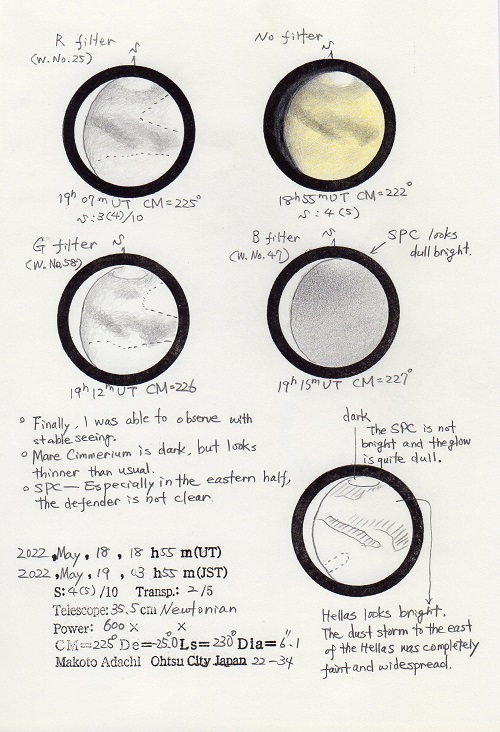 R filter
(W.No.25)
S
19h 07m UT CM=225°
S:3(4)/10
No filter
S
18h55m UT CM=222°
S:4(5)
G filter
(W.No.58)
S
19h 12m UT CM=226
B filter
(W.No.47)
S
SPC looks
dull bright.
19h 15m UT CM=227°
○ Finally, I was able to observe with
stable seeing.
○ Mare Cimmerium is dark, but looks
thinner than usual.
○ SPC— Especially in the eastern half,
the defender is not clear.
dark
The SPC is not
bright and the glow
is quite dull.
Hellas looks bright.
The dust storm to the east
of the Hellas was completely
faint and widespread.
2022,May,18,18 h55 m(UT)
2022,May,19,03 h55 m(JST)
S:4(5)/10 Transp.: 2/5
Telescope:35.5cm Newtonian
Power: 600× ×
CM=225° De=-25.0° Ls=230° Dia=6".1
Makoto Adachi Ohtsu City Japan 22-34